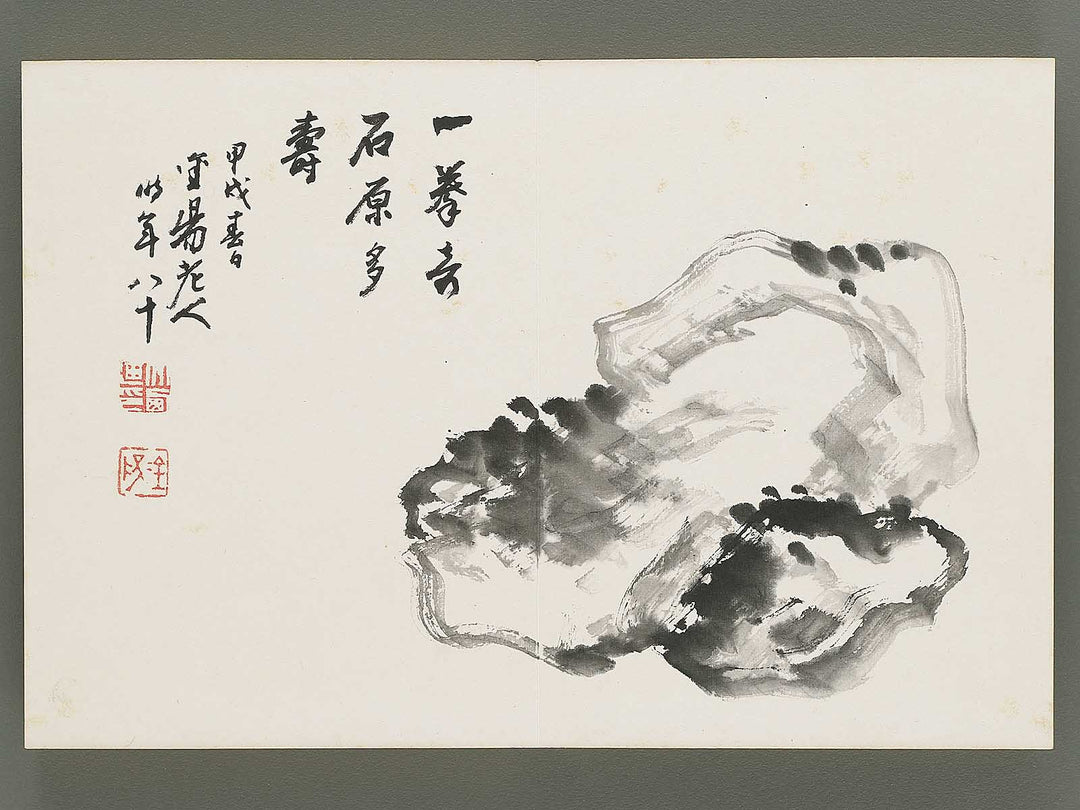 一拳奇
石原多
壽
甲戌春日
老人
時年八十